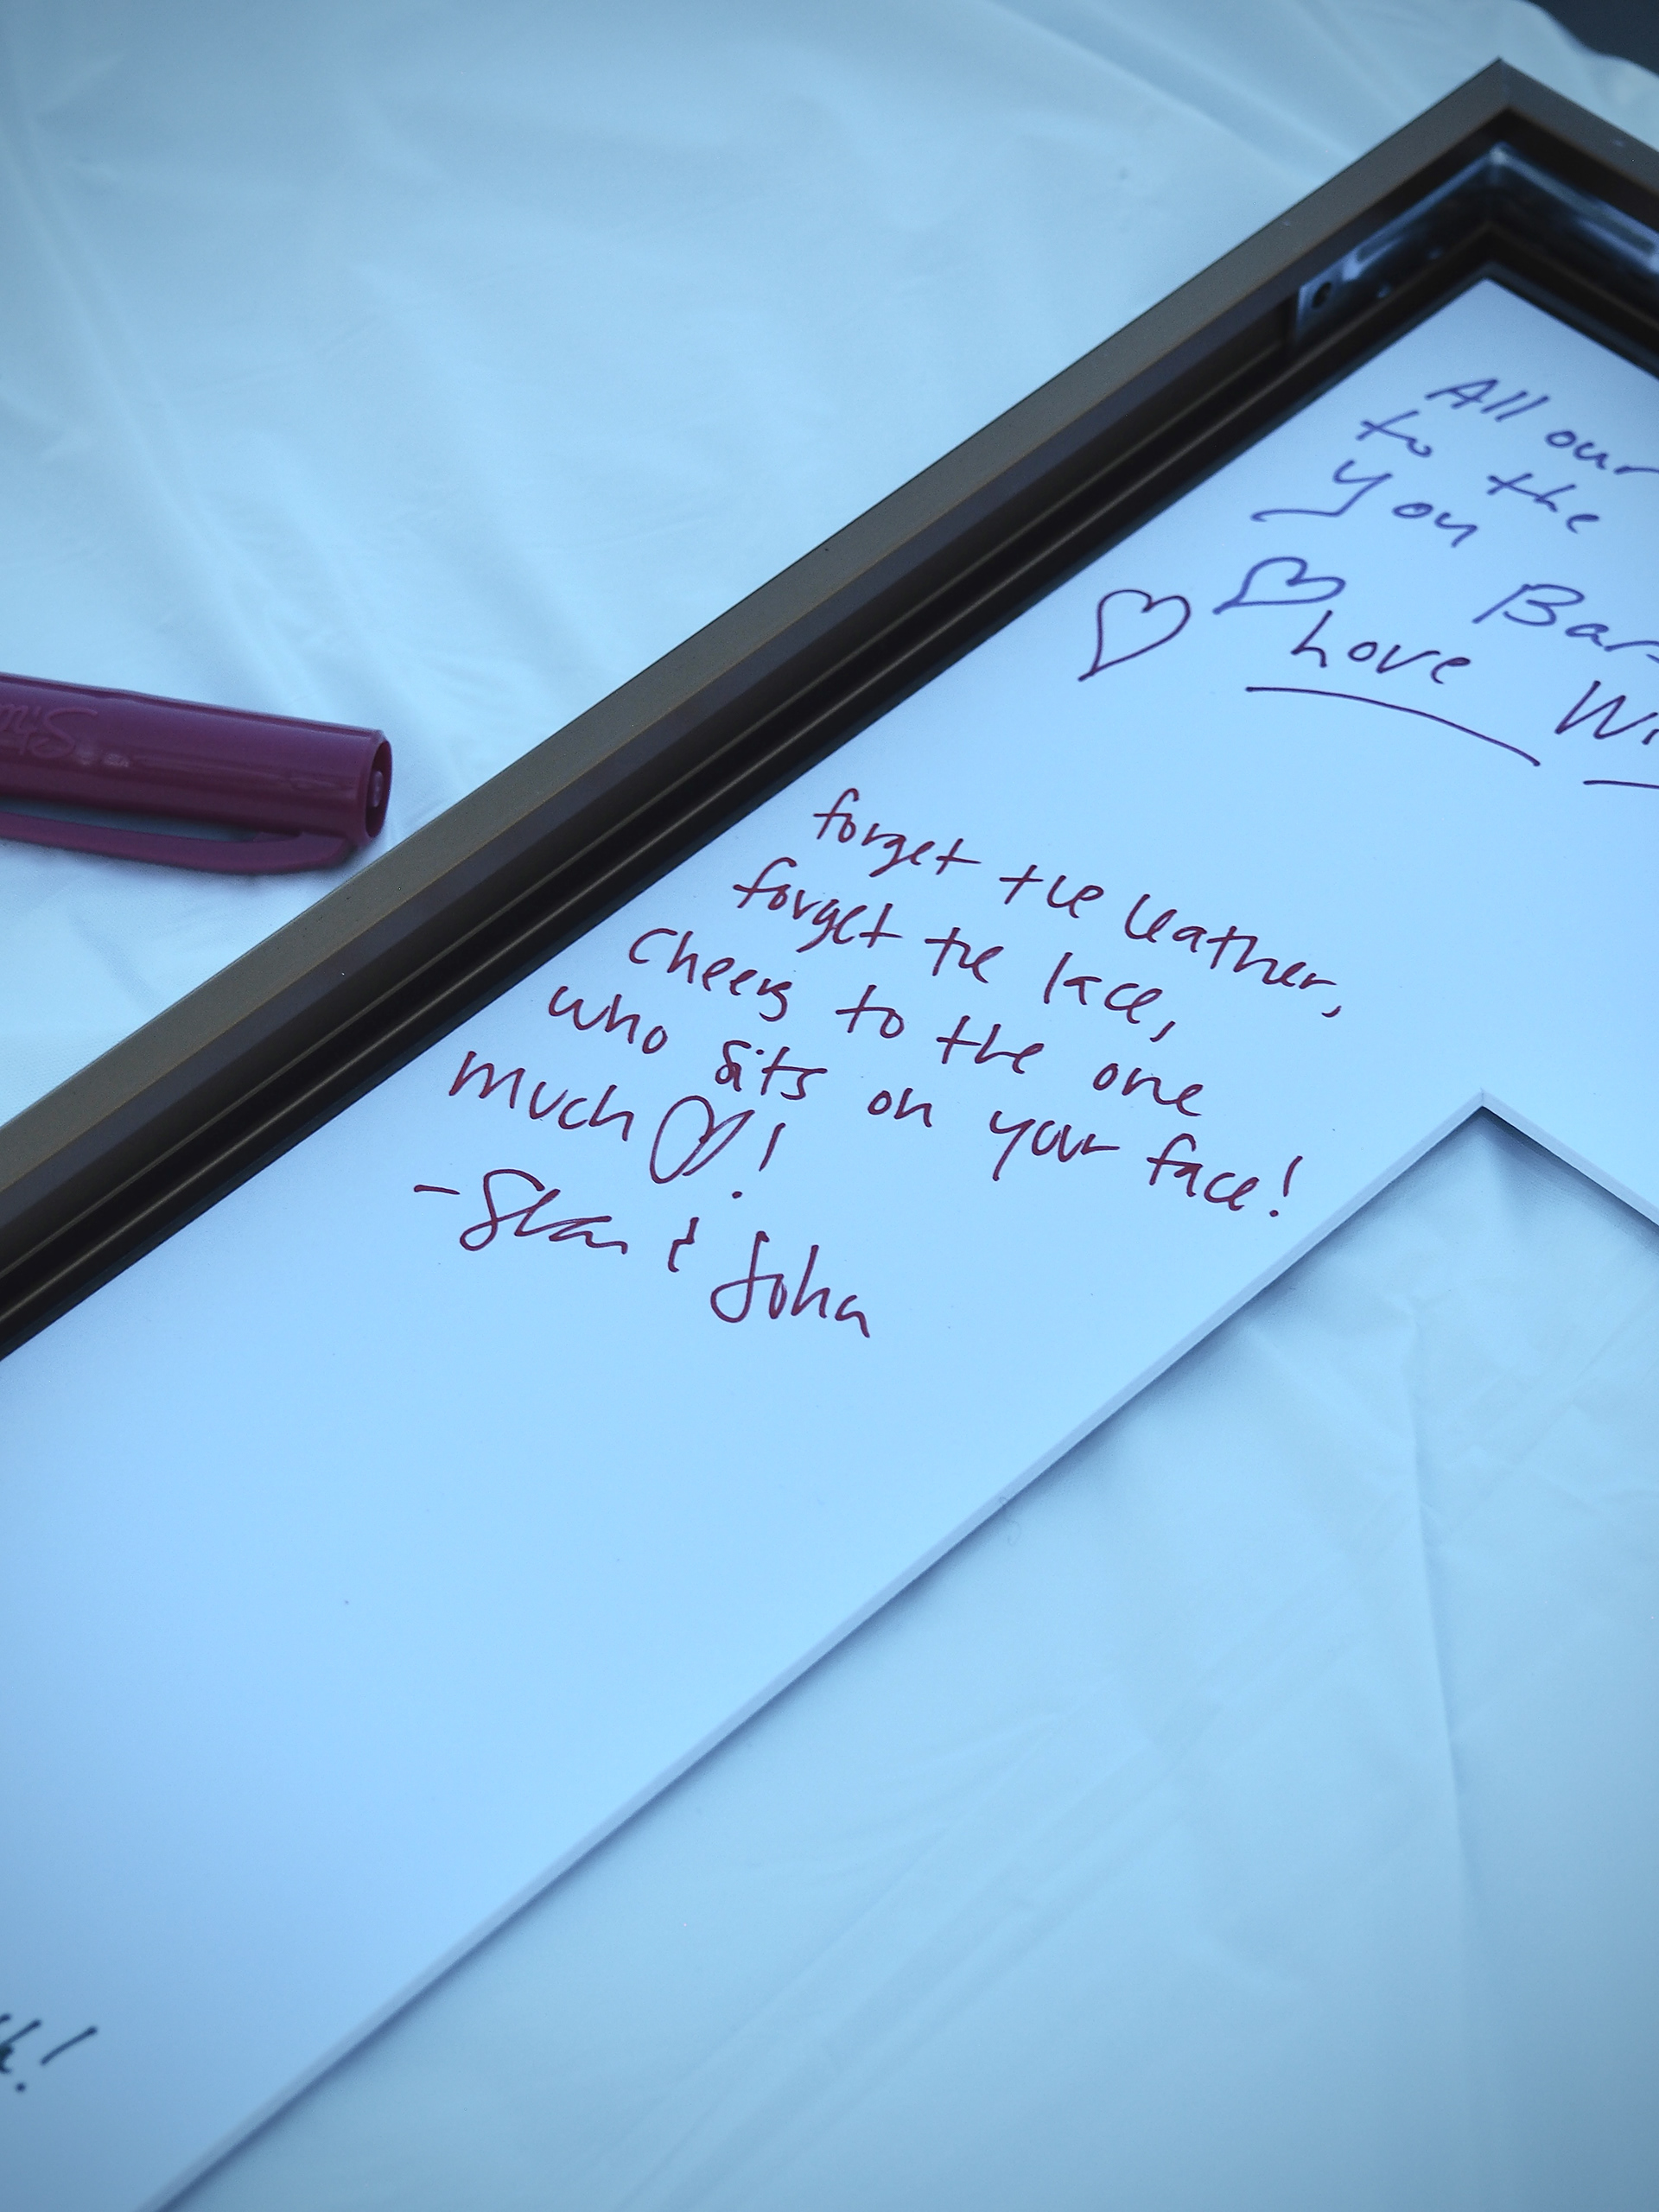 All our
to the
you
Bar
Love Wi
forget the leather,
forget the lace,
Cheers to the one
who sits on your face!
much ♡!
-Sean & John